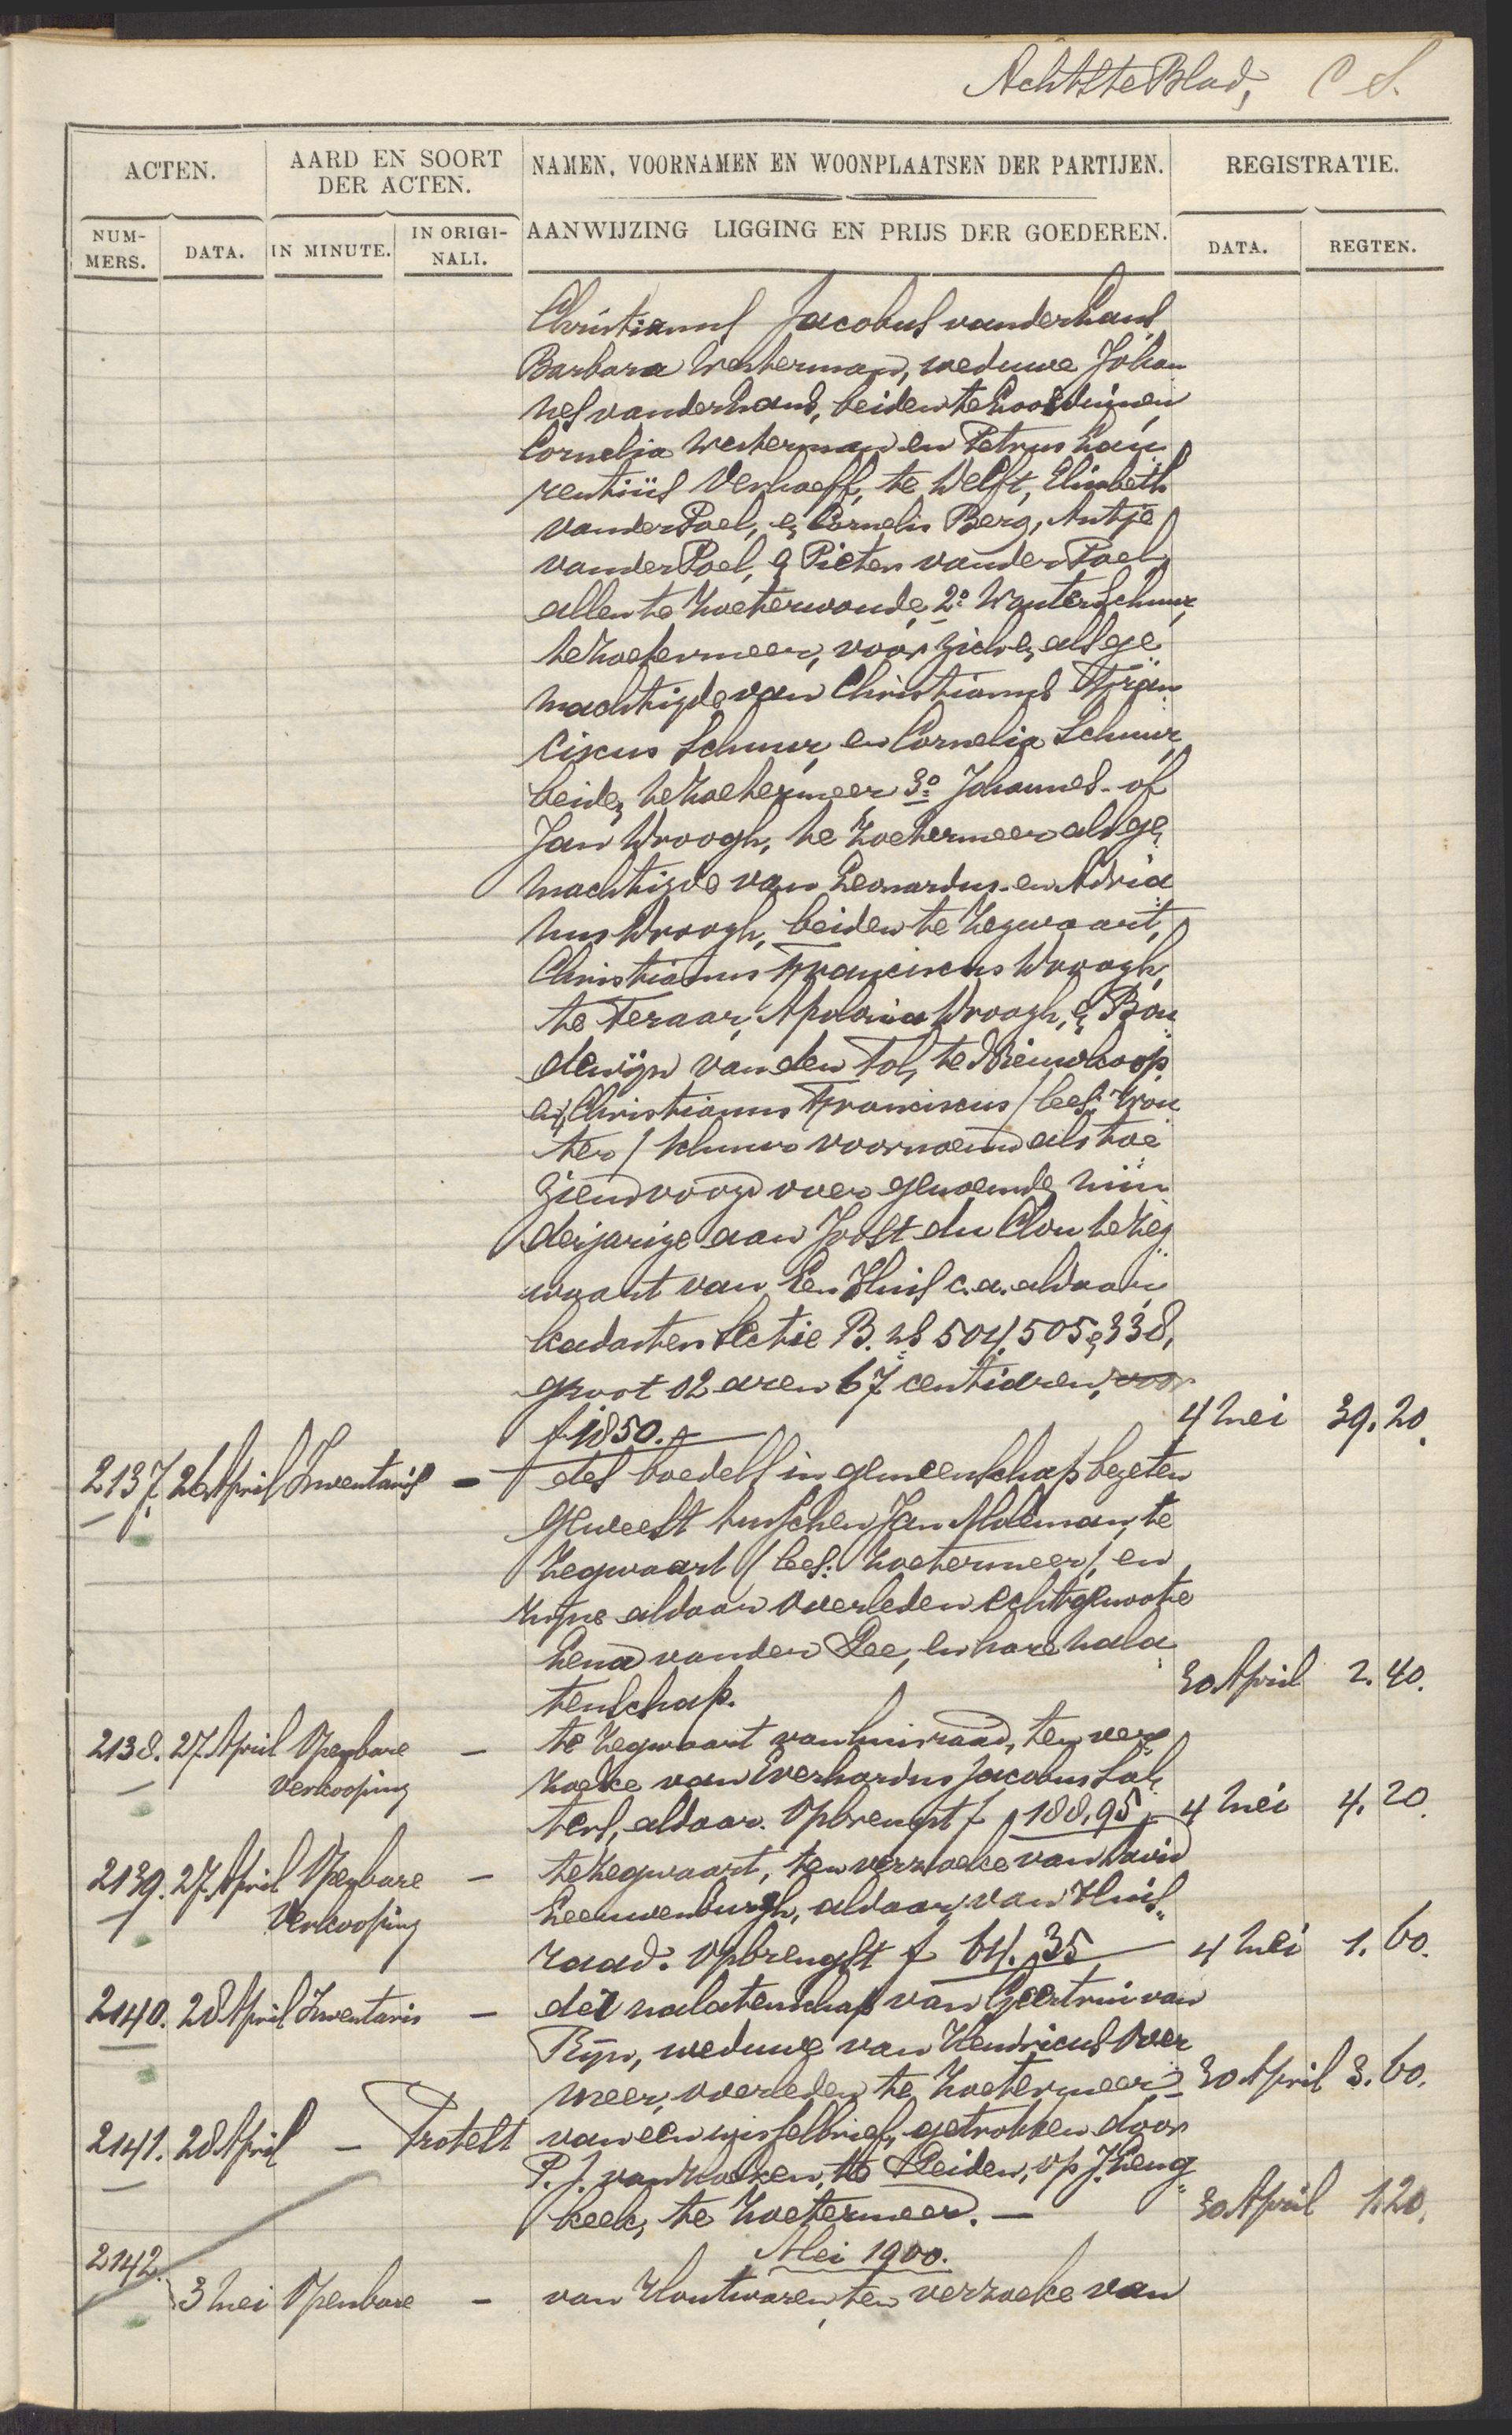 Achtste Blad, C S.
ACTEN. AARD EN SOORT DER ACTEN. NAMEN, VOORNAMEN EN WOONPLAATSEN DER PARTIJEN. REGISTRATIE.
NUM-MERS. DATA. IN MINUTE. IN ORIGI-NALI. AANWIJZING LIGGING EN PRIJS DER GOEDEREN. DATA. REGTEN.
Christianus Jacobus vander Hans
Barbara Westerman, weduwe Johan
nes vander Hans, beiden te Loosduinen
Cornelia Westerman en Petrus Lau
rentius Verhoeff, te Delft, Elisabeth
vander Poel, en Cornelis Berg, Antje
vander Poel, en Pieter vander Poel
allen te Zoeterwoude, 2o Wouter Schuur
te Zoetermeer, voor zich en als ge
machtigde van Christianus Fran
ciscus Schuur, en Cornelia Schuur,
beiden te Zoetermeer 3o Johannes- of
Jan Droogh, te Zoetermeer als ge
machtigde van Leonardus- en Adria
nus Droogh, beiden te Zegwaart,
Christianus Franciscus Droogh,
te Teraar, Apolonia Droogh, en Bou
dewijn van den Tol, te Nieuwkoop
en Christianus Franciscus / lees: Wou
ter / Schuur voornoemd als toe
ziend voogd over genoemde min
derjarige aan Joost du Clou te Zeg
waart van Een Huis c.a. aldaar
kadaster Sectie B. Ns 504, 505 en 338,
groot 02 aren 67 centiaren, voor
f 1850.- 4 Mei 39.20.
2137. 26 April Inventaris - des boedels in gemeenschap bezeten
geweest tusschen Jan Moleman, te
Zegwaart / lees: Zoetermeer / en
zijne aldaar overleden echtgenoote
Lena vander Lee, en hare nala
tenschap. 30 April 2.40.
2138. 27 April Openbare - te Zegwaart van huisraad, ten ver
Verkooping zoeke van Everhardus Jacobus Sol
ters, aldaar. Opbrengst f 188,95 4 Mei 4.20
2139. 27 April Openbare - te Zegwaart, ten verzoeke van David
Verkooping Leeuwenburgh, aldaar, van Huis
raad. Opbrengst f 64.35 4 Mei 1.60.
2140. 28 April Inventaris - der nalatenschap van Geertrui van
Rijn, weduwe van Hendricus Over
meer, overleden te Zoetermeer 30 April 3.60.
2141. 28 April - Protest van een wisselbrief, getrokken door
P. J. van Hoeken, te Leiden, op J. Leng
keek, te Zoetermeer. - 30 April 1.20.
Mei 1900.
2142. 3 Mei Openbare - van Houtwaren, ten verzoeke van